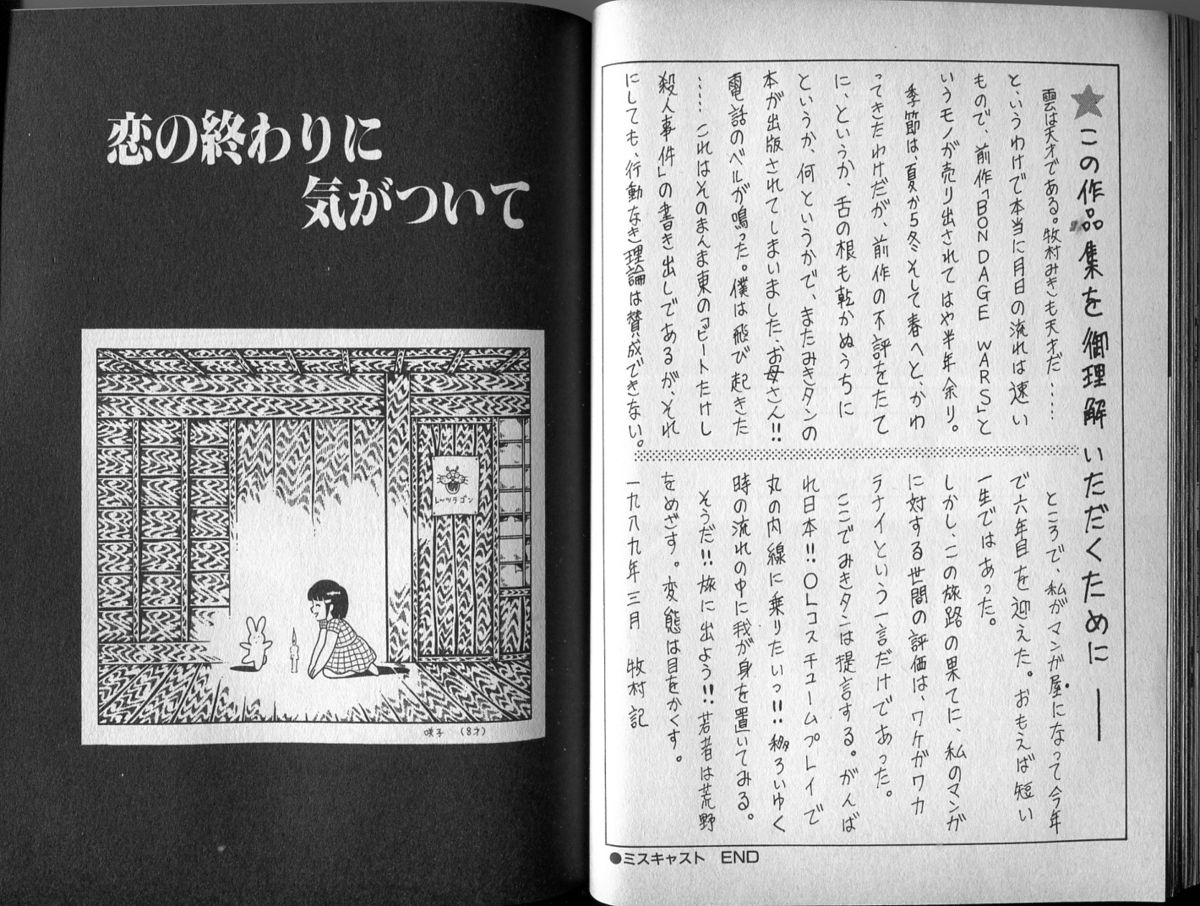 ★この作品集を御理解いただくために──
雲は天才である。牧村みきも天才だ……
というわけで本当に月日の流れは速い
もので、前作「BONDAGE WARS」と
いうモノが売り出されてはや半年余り。
季節は、夏から冬そして春へと、かわ
ってきたわけだが、前作の不評をたて
に、というか、舌の根も乾かぬうちに
というか、何というかで、またみきタンの
本が出版されてしまいました、お母さん!!
電話のベルが鳴った。僕は飛び起きた
……これはそのまんま東の「ビートたけし
殺人事件」の書き出しであるが、それ
にしても、行動なき理論は賛成できない。
ところで、私がマンガ屋になって今年
で六年目を迎えた。おもえば短い
一生ではあった。
しかし、この旅路の果てに、私のマンガ
に対する世間の評価は、ワケがワカ
ラナイという一言だけであった。
ここでみきタンは提言する。がんば
れ日本!!OLコスチュームプレイで
丸の内線に乗りたいっ!!移ろいゆく
時の流れの中に我が身を置いてみる。
そうだ!!旅に出よう!!若者は荒野
をめざす。変態は目をかくす。
一九八九年三月 牧村 記
●ミスキャスト END
恋の終わりに
気がついて
レッツラゴン
咲子 (8才)